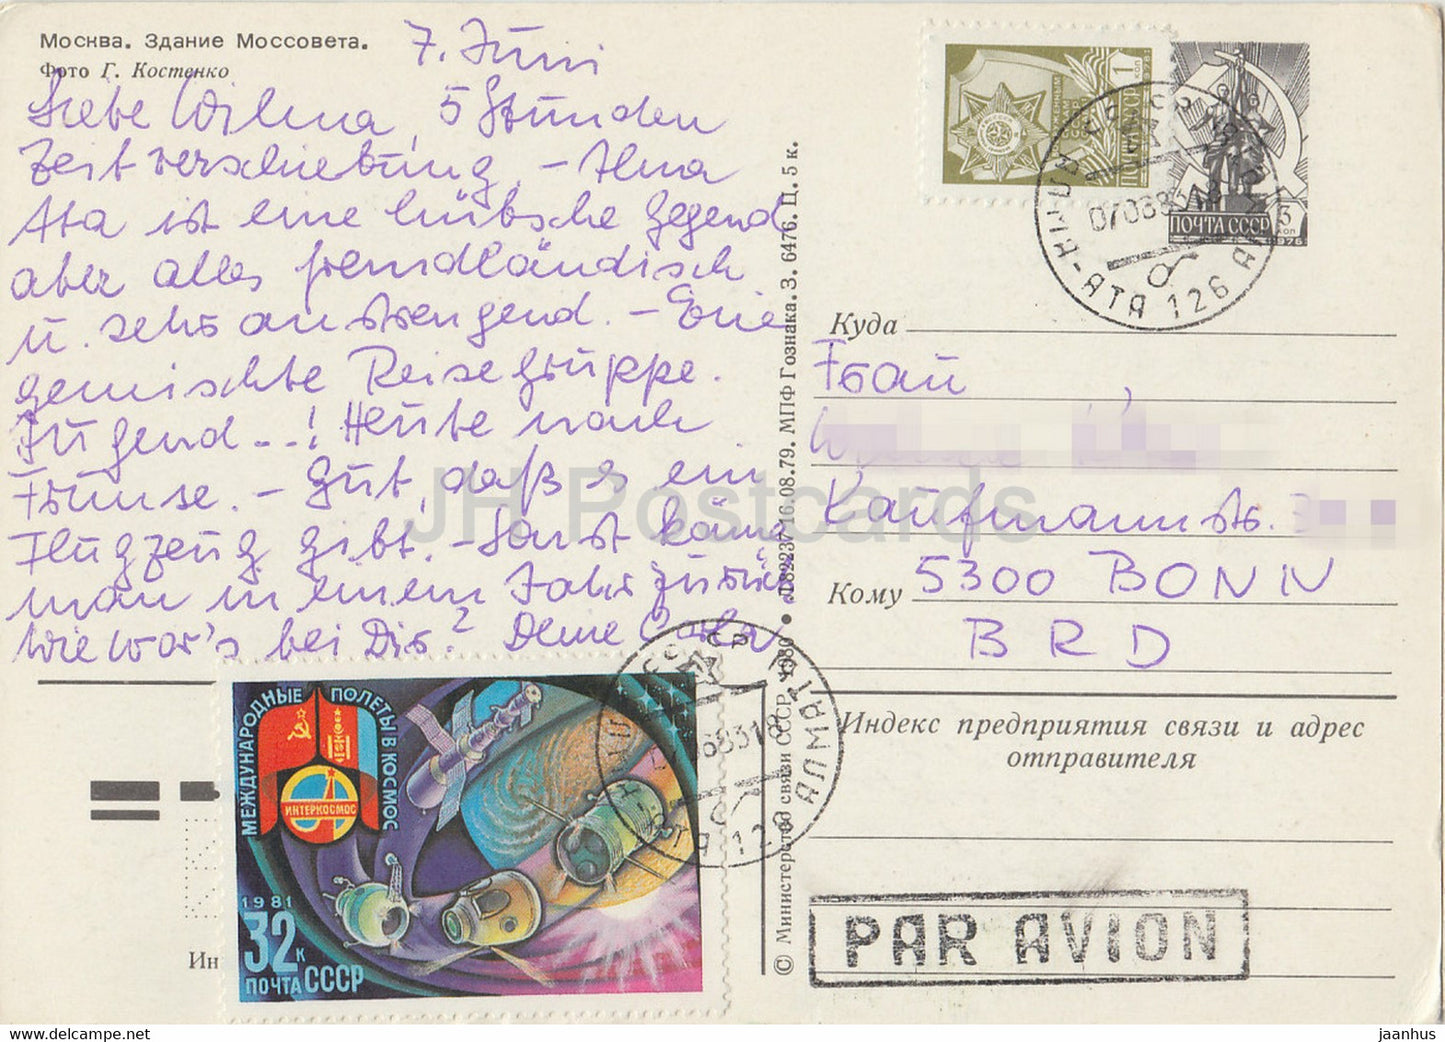 Москва. Здание Моссовета.
Фото Г. Костенко
7. Juni
Liebe Wilma, 5 Stunden
Zeitverschiebung, – Alma
Ata ist eine hübsche Gegend
aber alles fremdländisch
u. sehr anstrengend. – Eine
gemischte Reisegruppe.
Jugend--! Heute nach
Frunse. – Gut, daß es ein
Flugzeug gibt. – Sonst käme
man in einem Jahr zurück
Wie war's bei Dir? Deine Carla
JH Postcards
© Министерство связи СССР. 1980 • 182237 16.08.79. МПФ Гознака. З. 6476. Ц. 5 к.
1 коп
ПОЧТА СССР
ПОЧТА СССР 5 коп
1976
070683
АТА 126
Куда
Frau
Kaufmannstr.
Кому 5300 BONN
BRD
Индекс предприятия связи и адрес
отправителя
PAR AVION
МЕЖДУНАРОДНЫЕ ПОЛЕТЫ В КОСМОС
ИНТЕРКОСМОС
1981
32 к
ПОЧТА СССР
Ин
jaanhus